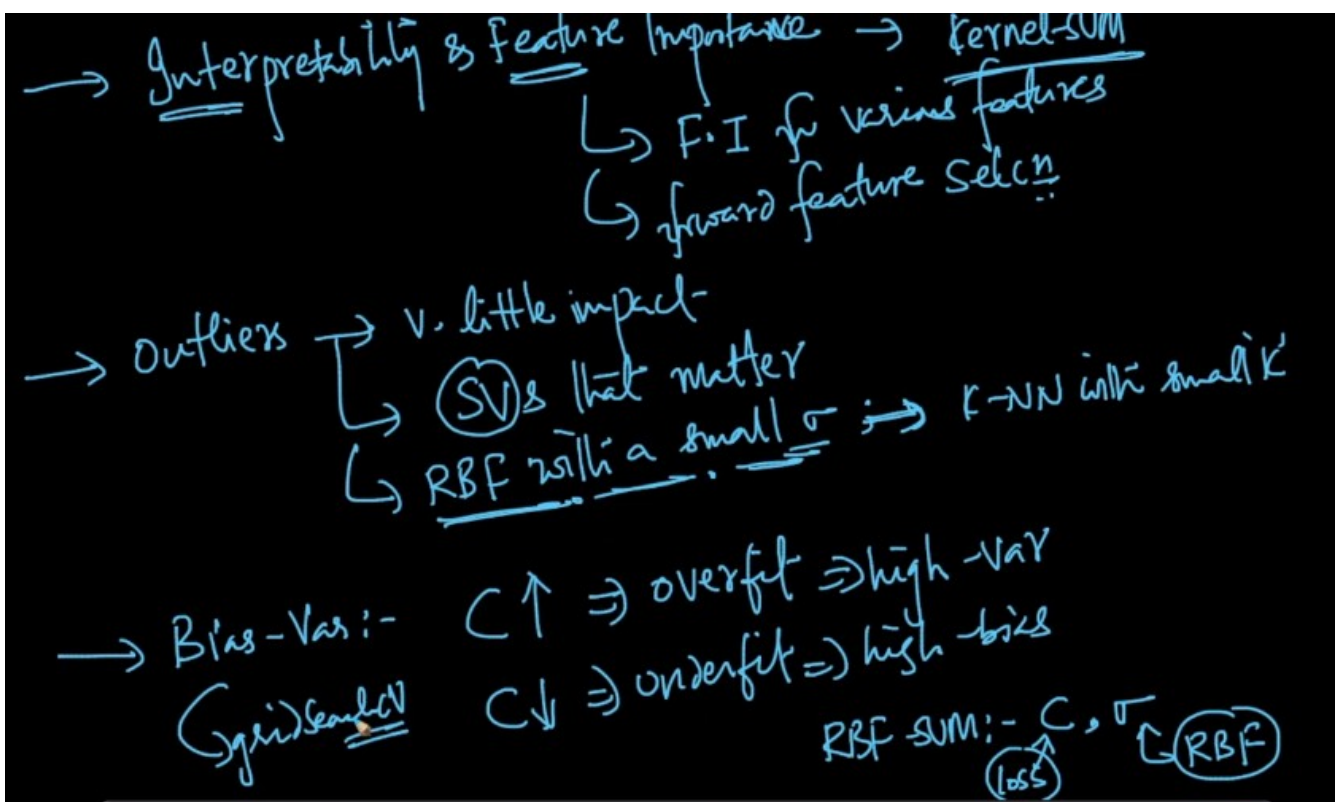 → Interpretability & Feature Importance → Kernel-SVM
↳ F.I for various features
↳ forward feature selcn
→ Outliers → v. little impact
↳ SVs that matter
↳ RBF with a small σ ; → K-NN with small 'K'
→ Bias-Var:- C↑ ⇒ overfit ⇒ high-var
C↓ ⇒ underfit ⇒ high-bias
↳ gridSearchCV
RBF-SVM:- C, σ
loss
RBF